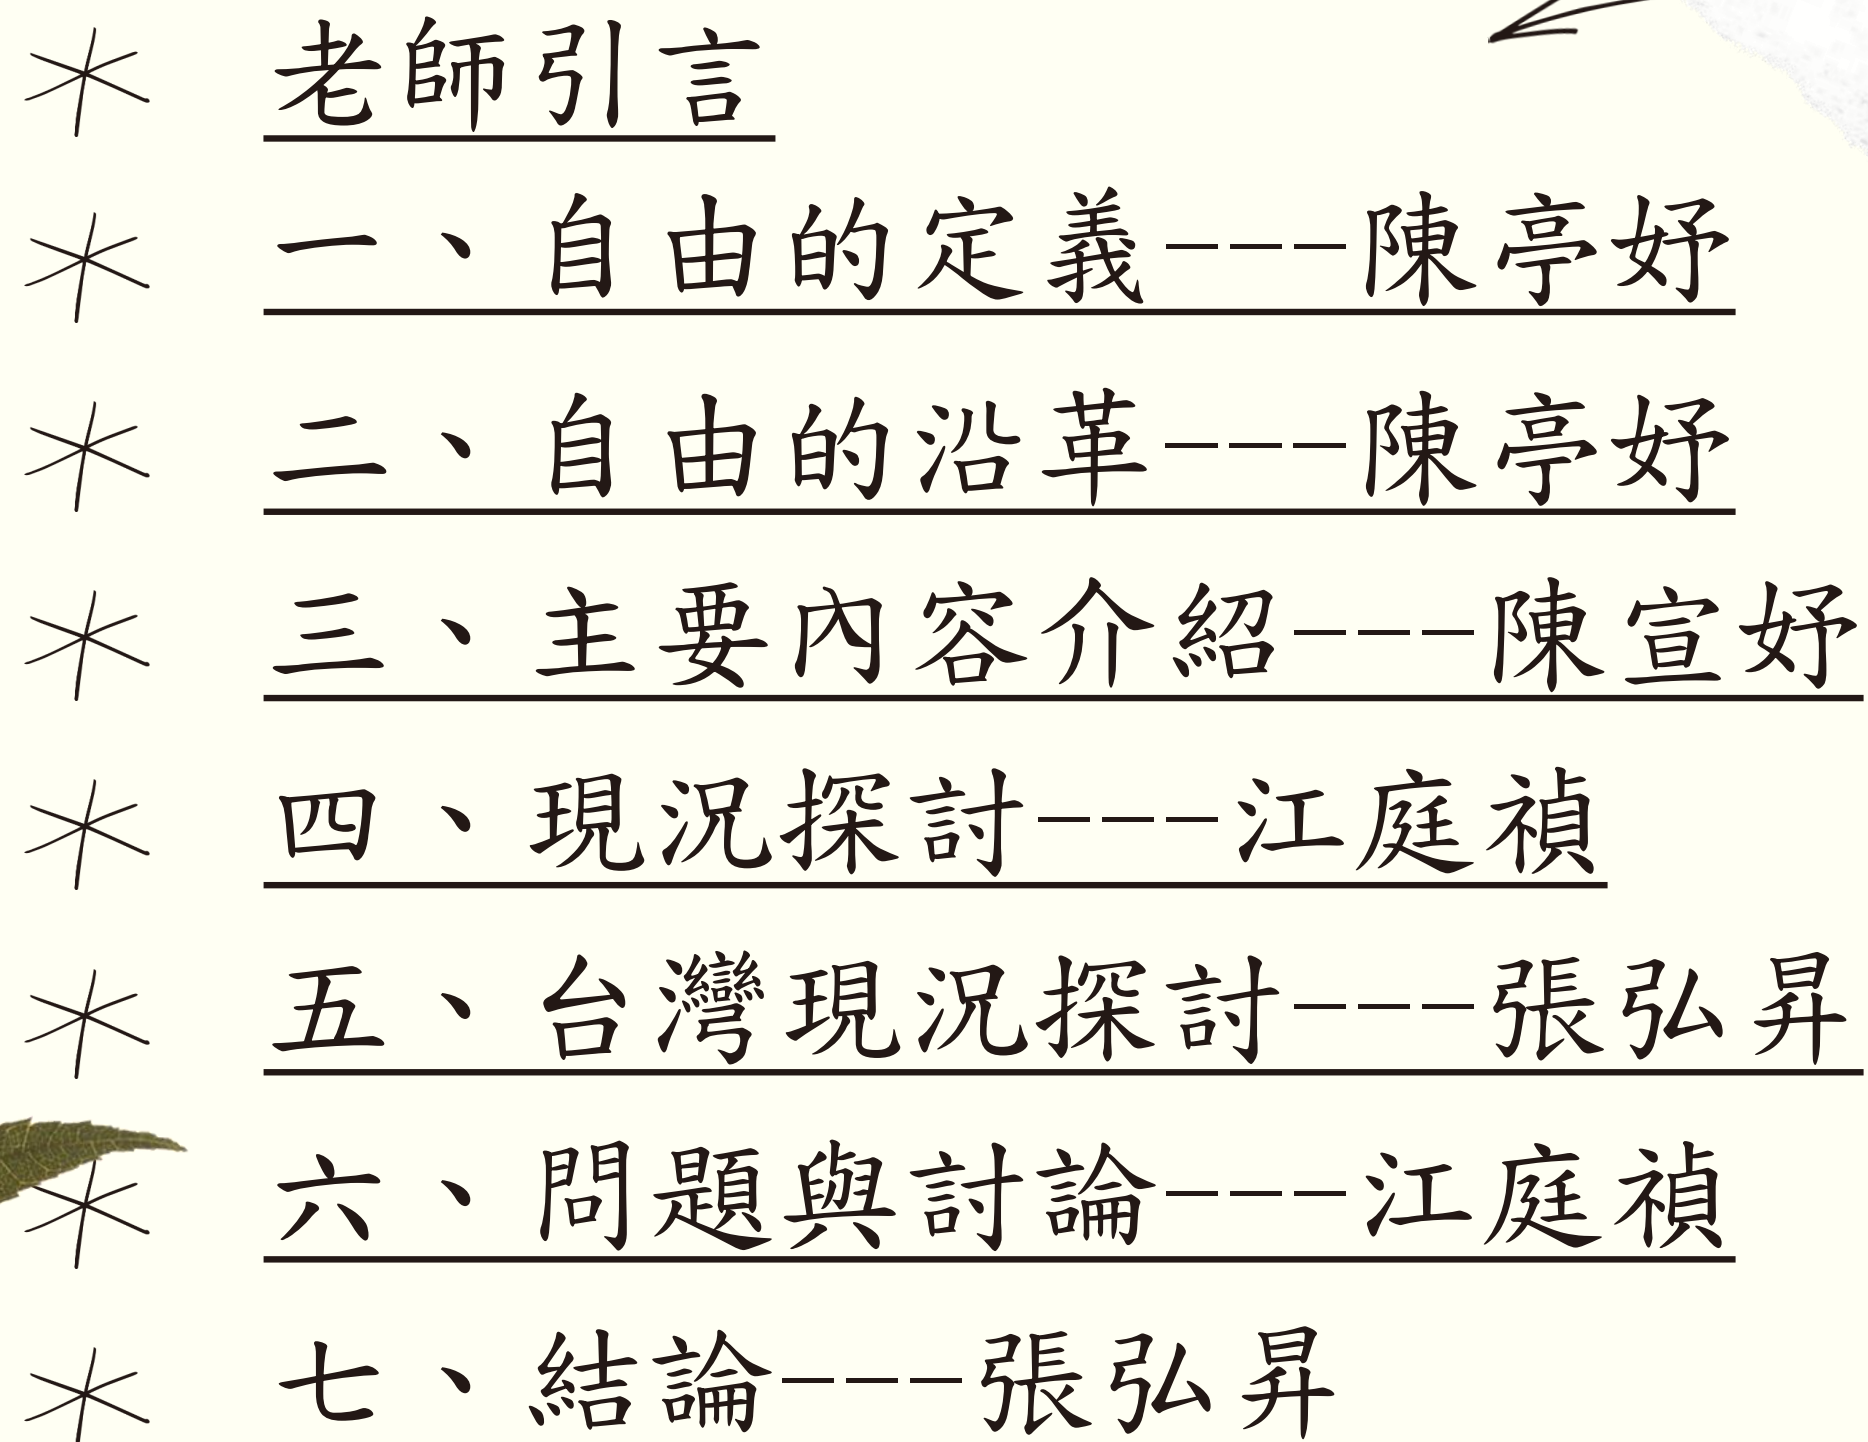 老師引言
一、自由的定義---陳亭妤
二、自由的沿革---陳亭妤
三、主要內容介紹---陳宣妤
四、現況探討---江庭禎
五、台灣現況探討---張弘昇
六、問題與討論---江庭禎
七、結論---張弘昇